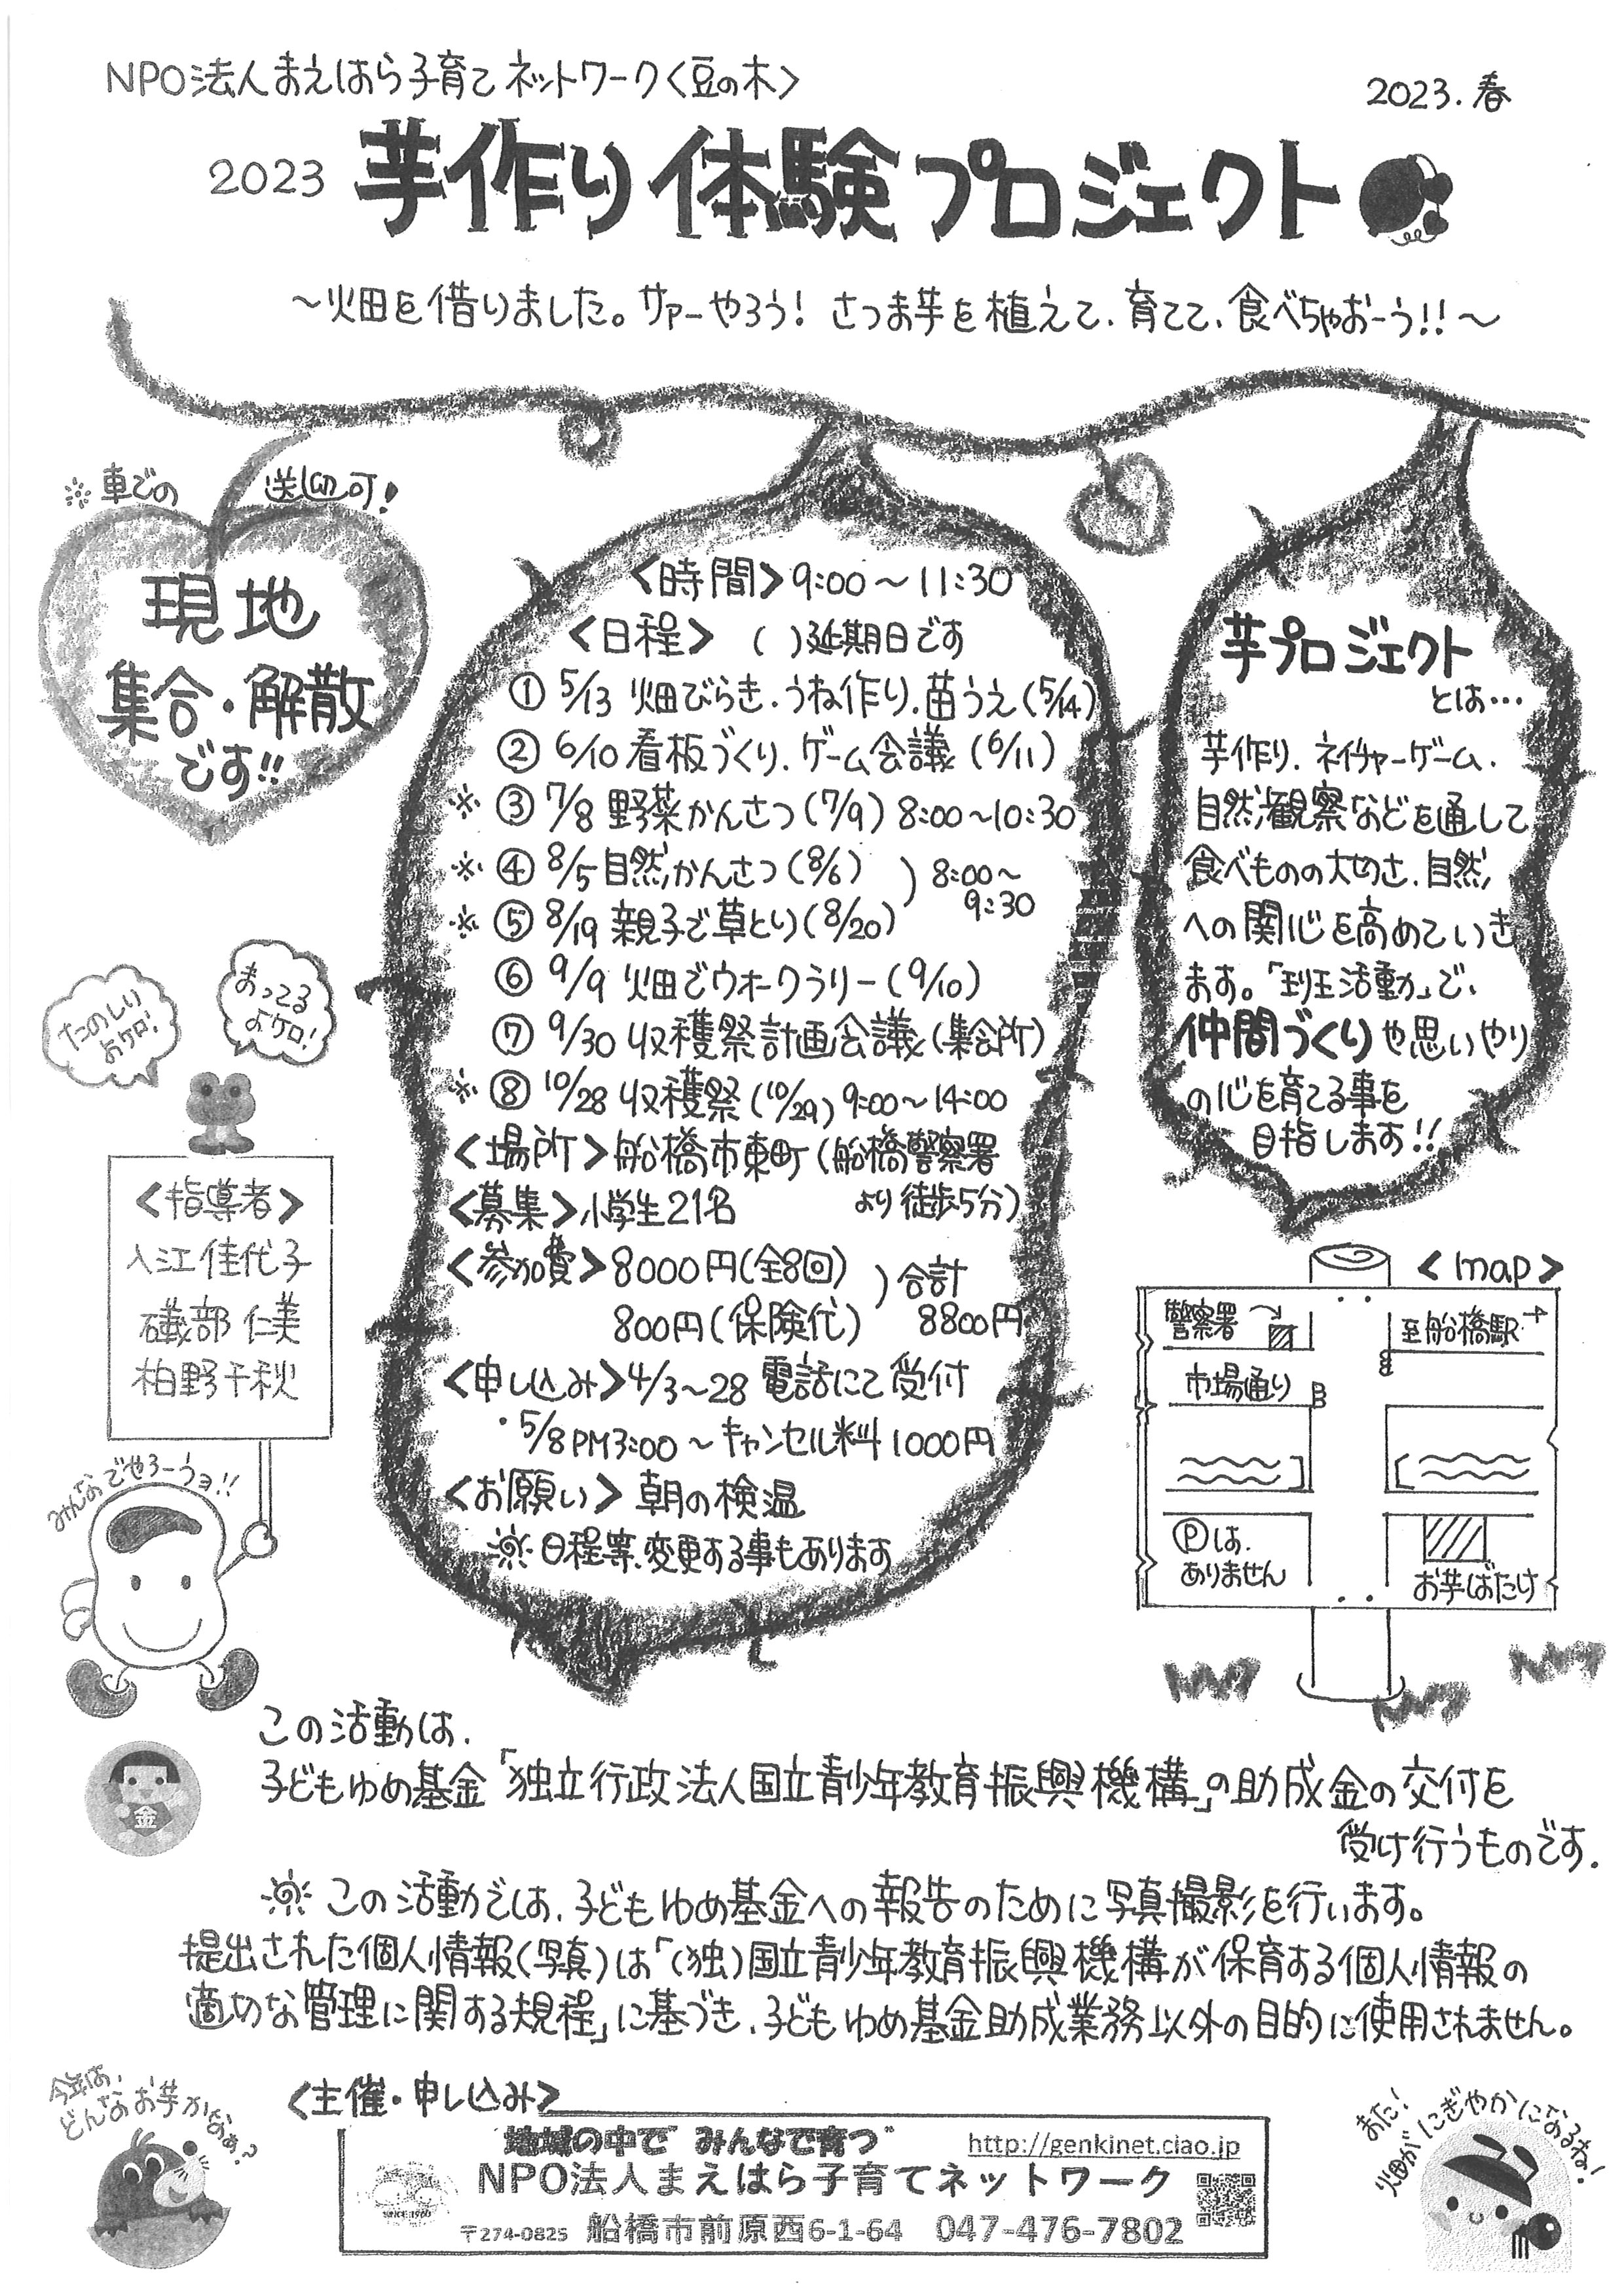 NPO法人まえはら子育てネットワーク〈豆の木〉
2023.春
2023 芋作り体験プロジェクト
～畑を借りました。サァーやろう！さつま芋を植えて、育てて、食べちゃおーう!!～
※車での送迎可!
現地
集合・解散
です!!
〈時間〉9:00～11:30
〈日程〉 ( )延期日です
① 5/13 畑びらき.うね作り.苗うえ(5/14)
② 6/10 看板づくり.ゲーム会議(6/11)
※③ 7/8 野菜かんさつ(7/9) 8:00～10:30
※④ 8/5 自然かんさつ(8/6) ) 8:00～
9:30
※⑤ 8/19 親子で草とり(8/20)
⑥ 9/9 畑でウオークラリー(9/10)
⑦ 9/30 収穫祭計画会議(集会所)
※⑧ 10/28 収穫祭(10/29) 9:00～14:00
〈場所〉船橋市東町(船橋警察署
より徒歩5分)
〈募集〉小学生21名
〈参加費〉8000円(全8回) ) 合計
800円(保険代) 8800円
〈申し込み〉4/3～28 電話にて受付
・5/8PM3:00～キャンセル料1000円
〈お願い〉朝の検温
※日程等、変更する事もあります
芋プロジェクト
とは…
芋作り.ネイチャーゲーム.
自然観察などを通して
食べものの大切さ.自然
への関心を高めていき
ます。「班活動」で、
仲間づくりや思いやり
の心を育てる事を
目指します!!
たのしい
よケロ!
まってる
よケロ!
〈指導者〉
入江佳代子
磯部仁美
柏野千秋
みんなでやろーうョ!!
〈map〉
警察署
至船橋駅→
市場通り
Ⓟは.
ありません
お芋ばたけ
この活動は.
子どもゆめ基金「独立行政法人国立青少年教育振興機構」の助成金の交付を
受け行うものです.
金
※この活動では、子どもゆめ基金への報告のために写真撮影を行います。
提出された個人情報(写真)は「(独)国立青少年教育振興機構が保育する個人情報の
適切な管理に関する規程」に基づき、子どもゆめ基金助成業務以外の目的に使用されません。
今年は.
どんなお芋かなぁ?
〈主催・申し込み〉
地域の中で"みんなで育つ"
http://genkinet.ciao.jp
NPO法人まえはら子育てネットワーク
SINCE 1980
〒274-0825 船橋市前原西6-1-64 047-476-7802
また!
畑がにぎやかになるね!